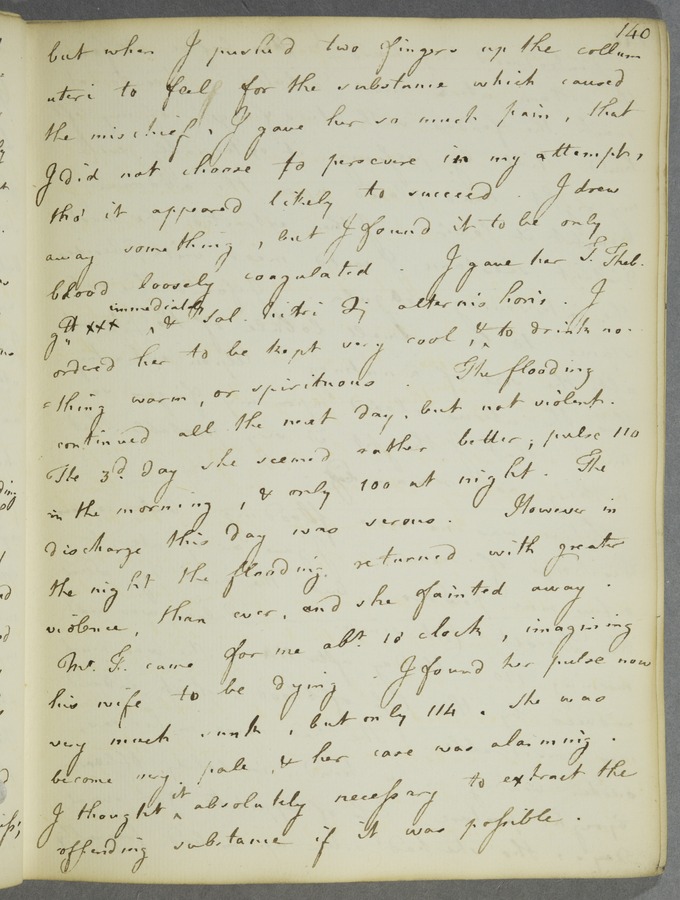 140
but when I pushed two fingers up the collum
uteri to feel for the substance which caused
the mischief, I gave her so much pain, that
I did not choose to persevere in my attempts,
tho' it appeared likely to succeed. I drew
away something, but I found it to be only
blood loosely coagulated. I gave her T. Theb.
gtt xxx immediately, & Sal. Nitri ʒj alternis horis. I
ordered her to be kept very cool, & to drink no-
=thing warm, or spirituous. The flooding
continued all the next day, but not violent.
The 3d. day she seemed rather better; pulse 110
in the morning, & only 100 at night. The
discharge this day was serous. However in
the night the flooding returned with greater
violence, than ever, and she fainted away.
Mr. F. came for me abt. 10 clock, imagining
his wife to be dying. I found her pulse now
very much sunk, but only 114. She was
become very pale, & her case was alarming.
I thought it absolutely necessary to extract the
offending substance if it was possible.